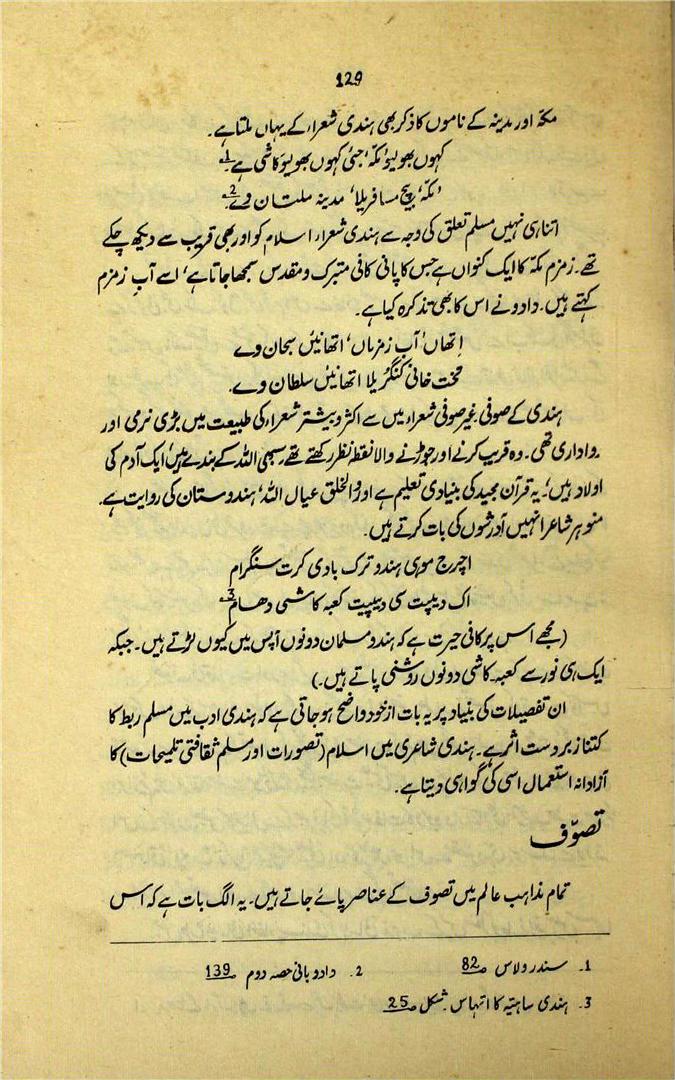 129
مکہ اور مدینہ کے ناموں کا ذکر بھی ہندی شعراء کے یہاں ملتا ہے۔
کہوں بھولیو مکہ، جئی کہوں بھولیو کاشی ہے 1
'مکہ' بیچ مسافریلا، مدینہ ملتان وے 2
اتنا ہی نہیں مسلم تعلق کی وجہ سے ہندی شعراء اسلام کو اور بھی قریب سے دیکھ چکے
تھے۔ زمزم مکہ کا ایک کنواں ہے جس کا پانی کافی متبرک و مقدس سمجھا جاتا ہے، اسے آبِ زمزم
کہتے ہیں۔ دادو نے اس کا بھی تذکرہ کیا ہے۔
اِتھاں آبِ زمزماں، اتھانیئں سبحان وے
تخت خانی کنگریلا اتھانیئں سلطان وے۔
ہندی کے صوفی غیر صوفی شعراء میں سے اکثر و بیشتر شعراء کی طبیعت میں بڑی نرمی اور
رواداری تھی۔ وہ قریب کرنے اور جوڑنے والا نقطۂ نظر رکھتے تھے سبھی اللہ کے بندے ہیں، ایک آدم کی
اولاد ہیں، یہ قرآن مجید کی بنیادی تعلیم ہے اور 'والخلق عیال اللہ' ہندوستان کی روایت ہے۔
منوہر شاعر انہیں آدرشوں کی بات کرتے ہیں۔
اچرج موہی ہندو ترک بادی کرت سنگرام
اک دیپت سی دیپیت کعبہ کاشی دھام 3
(مجھے اس پر کافی حیرت ہے کہ ہندو مسلمان دونوں آپس میں کیوں لڑتے ہیں۔ جبکہ
ایک ہی نور سے کعبہ۔ کاشی دونوں روشنی پاتے ہیں۔)
ان تفصیلات کی بنیاد پر یہ بات از خود واضح ہو جاتی ہے کہ ہندی ادب میں مسلم ربط کا
کتنا زبردست اثر ہے۔ ہندی شاعری میں اسلام (تصورات اور مسلم ثقافتی تلمیحات) کا
آزادانہ استعمال اسی کی گواہی دیتا ہے۔
تصوّف
تمام مذاہب عالم میں تصوف کے عناصر پائے جاتے ہیں۔ یہ الگ بات ہے کہ اس
1. سندر ولاس ص 82 2. دادو بانی حصہ دوم ص 139
3. ہندی ساہتیہ کا اتہاس۔ شکل ص 25